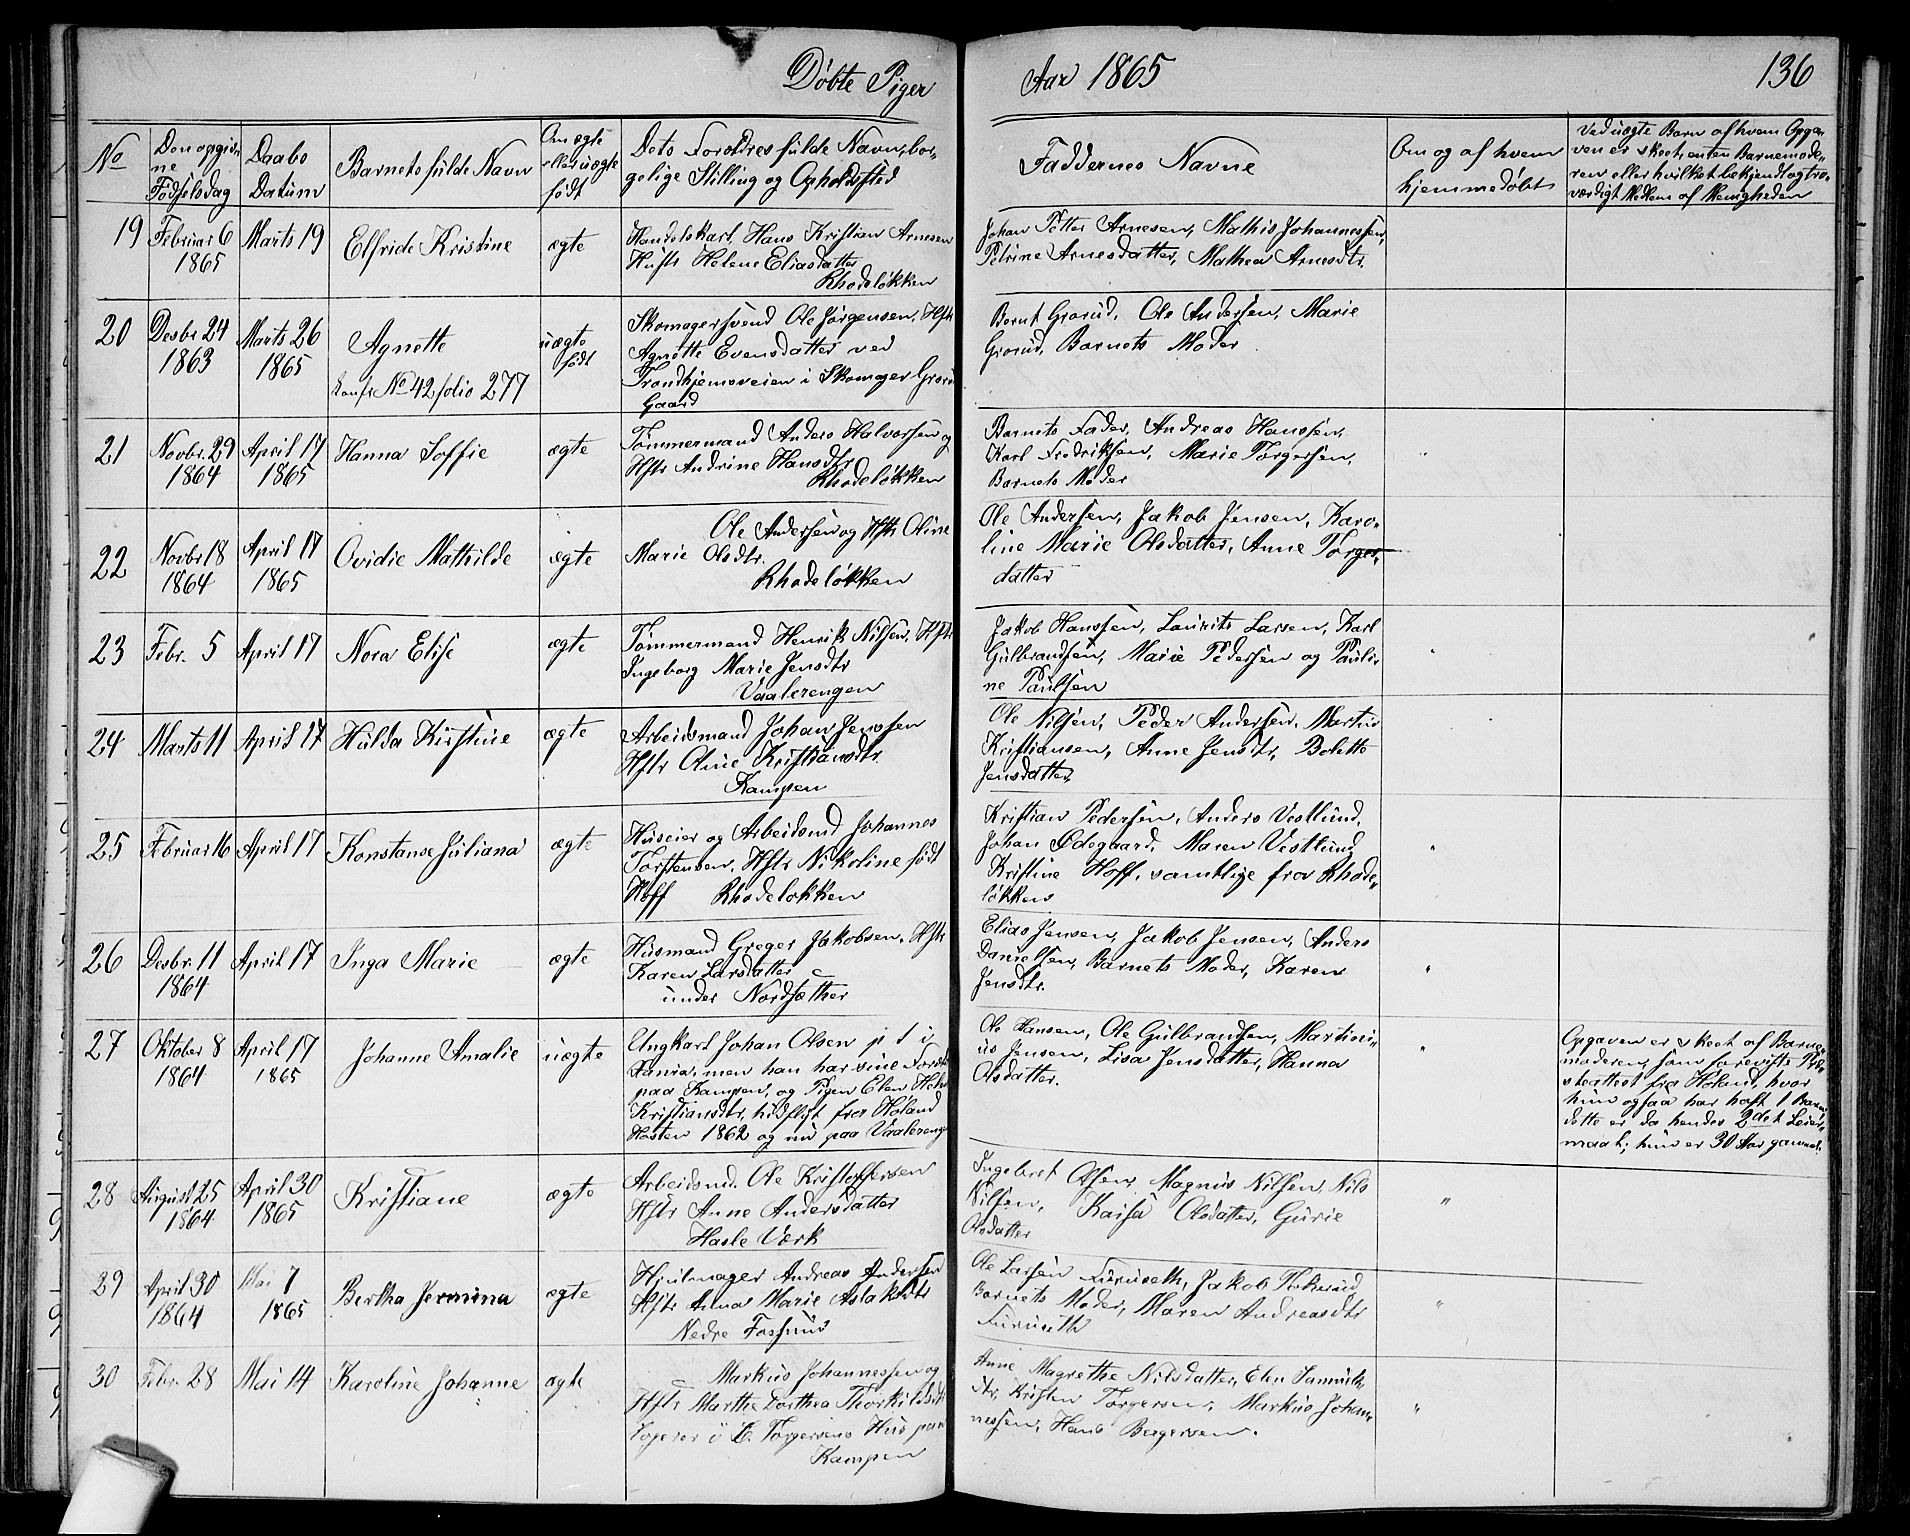 Døbte Piger
Aar 1865
136
No
Den opgivne Fødselsdag
Daabs Datum
Barnets fulde Navn
Om ægte eller uægte født
Dets Forældres fulde Navn, borgelige Stilling og Opholdssted
Faddernes Navne
Om og af hvem hjemmedøbt
Ved uægte Barn af hvem Opgaven er skeet, enten Barnemoderen eller hvilket bekjendt og troværdigt Medlem af Menigheden
19
Februar 6
1865
Marts 19
Elfride Kristine
ægte
Handelskarl Hans Kristian Arnesen
Hustr Helene Eliasdatter
Rhodeløkken
Johan Petter Arnesen, Mathis Johannessen,
Petrine Arnesdatter, Mathea Arnesdtr.
20
Desbr 24
1863
Marts 26
1865
Agnette
Konf. No 42 folio 277
uægte
født
Skomagersvend Ole Jørgensen, Hstr
Agnette Evensdatter ved
Trondhjemsveien i Skomager Grorud
Gaard
Bernt Grorud, Ole Andersen, Marie
Grorud, Barnets Moder
21
Novbr. 29
1864
April 17
1865
Hanna Soffie
ægte
Tømmermand Anders Halvorsen og
Hstr Andrine Hansdtr
Rhodeløkken
Barnets Fader, Andreas Hanssen,
Karl Fredriksen, Marie Torgersen,
Barnets Moder
22
Novbr 18
1864
April 17
1865
Ovidie Mathilde
ægte
Ole Andersen og Hstr Oline
Marie Olsdtr.
Rhodeløkken
Ole Andersen, Jakob Jensen, Karo-
line Marie Olsdatter, Anne Torgers-
datter
23
Febr. 5
April 17
Nora Elise
ægte
Tømmermand Henrik Nilsen, Hstr
Ingeborg Marie Jensdtr
Vaalerengen
Jakob Hanssen, Laurits Larsen, Karl
Gulbrandsen, Marie Pedersen og Pauli-
ne Paulsen
24
Marts 11
April 17
Hulda Kirstine
ægte
Arbeidsmand Johan Jenssen
Hstr Oline Kristiansdtr.
Kampen
Ole Nilsen, Peder Andersen, Martin
Kristiansen, Anne Jensdtr, Bolette
Jensdatter
25
Februar 16
April 17
Konstanse Juliana
ægte
Huseier og Arbeidsmd Johannes
Torstensen, Hstr Nikoline født
Hoff Rhodeløkken
Kristian Pedersen, Anders Vestlund,
Johan Ødegaard, Maren Vestlund
Kristine Hoff, samtlige fra Rhode-
løkken
26
Desbr. 11
1864
April 17
Inga Marie
ægte
Husmand Greger Jakobsen, Hstr
Karen Larsdatter
under Nordsæther
Elias Jensen, Jakob Jensen, Anders
Danielsen, Barnets Moder, Karen
Jensdtr.
27
Oktober 8
1864
April 17
1865
Johanne Amalie
uægte
Ungkarl Johan Olsen p t i
men han har sine
paa Kampen, og Pigen Elen
Kristiansdtr, hidflyt fra Høland
Høsten 1862 og nu paa Vaalereng
Ole Hansen, Ole Gulbrandsen, Martini-
us Jensen, Lisa Jensdatter, Hanna
Olsdatter.
Opgaven er skeet af Barne-
moderen, som foreviste
fra Høland, hvor
hun ogsaa har haft 1 Barn
dette er da hendes 2det Leier-
maal; hun er 30 Aar gammel
28
August 25
1864
April 30
1865
Kristiane
ægte
Arbeidsmd. Ole Kristoffersen
Hstr Anne Andersdatter
Hasle Værk
Ingebret Olsen, Magnus Nilsen, Nils
Nilsen, Kaisa Olsdatter, Gurie
Olsdatter
29
April 30
1864
Mai 7
1865
Bertha Jermina
ægte
Hjulmager Andreas Andersen
Hstr Anna Marie Aslaksdtr
Nedre Fossum
Ole Larsen Furuseth, Jakob
Barnets Moder, Maren Andreasdtr
Furuseth
30
Febr. 28
Mai 14
Karoline Johanne
ægte
Markus Johannessen og
Hstr Marthe Dorthea Thorkildsdt
Logerer i E. Torgersens Hus paa
Kampen
Anne Magrethe Nilsdatter, Elen Samuels-
dtr, Kristen Torgersen, Markus Johan-
nessen, Hans Bergersen.